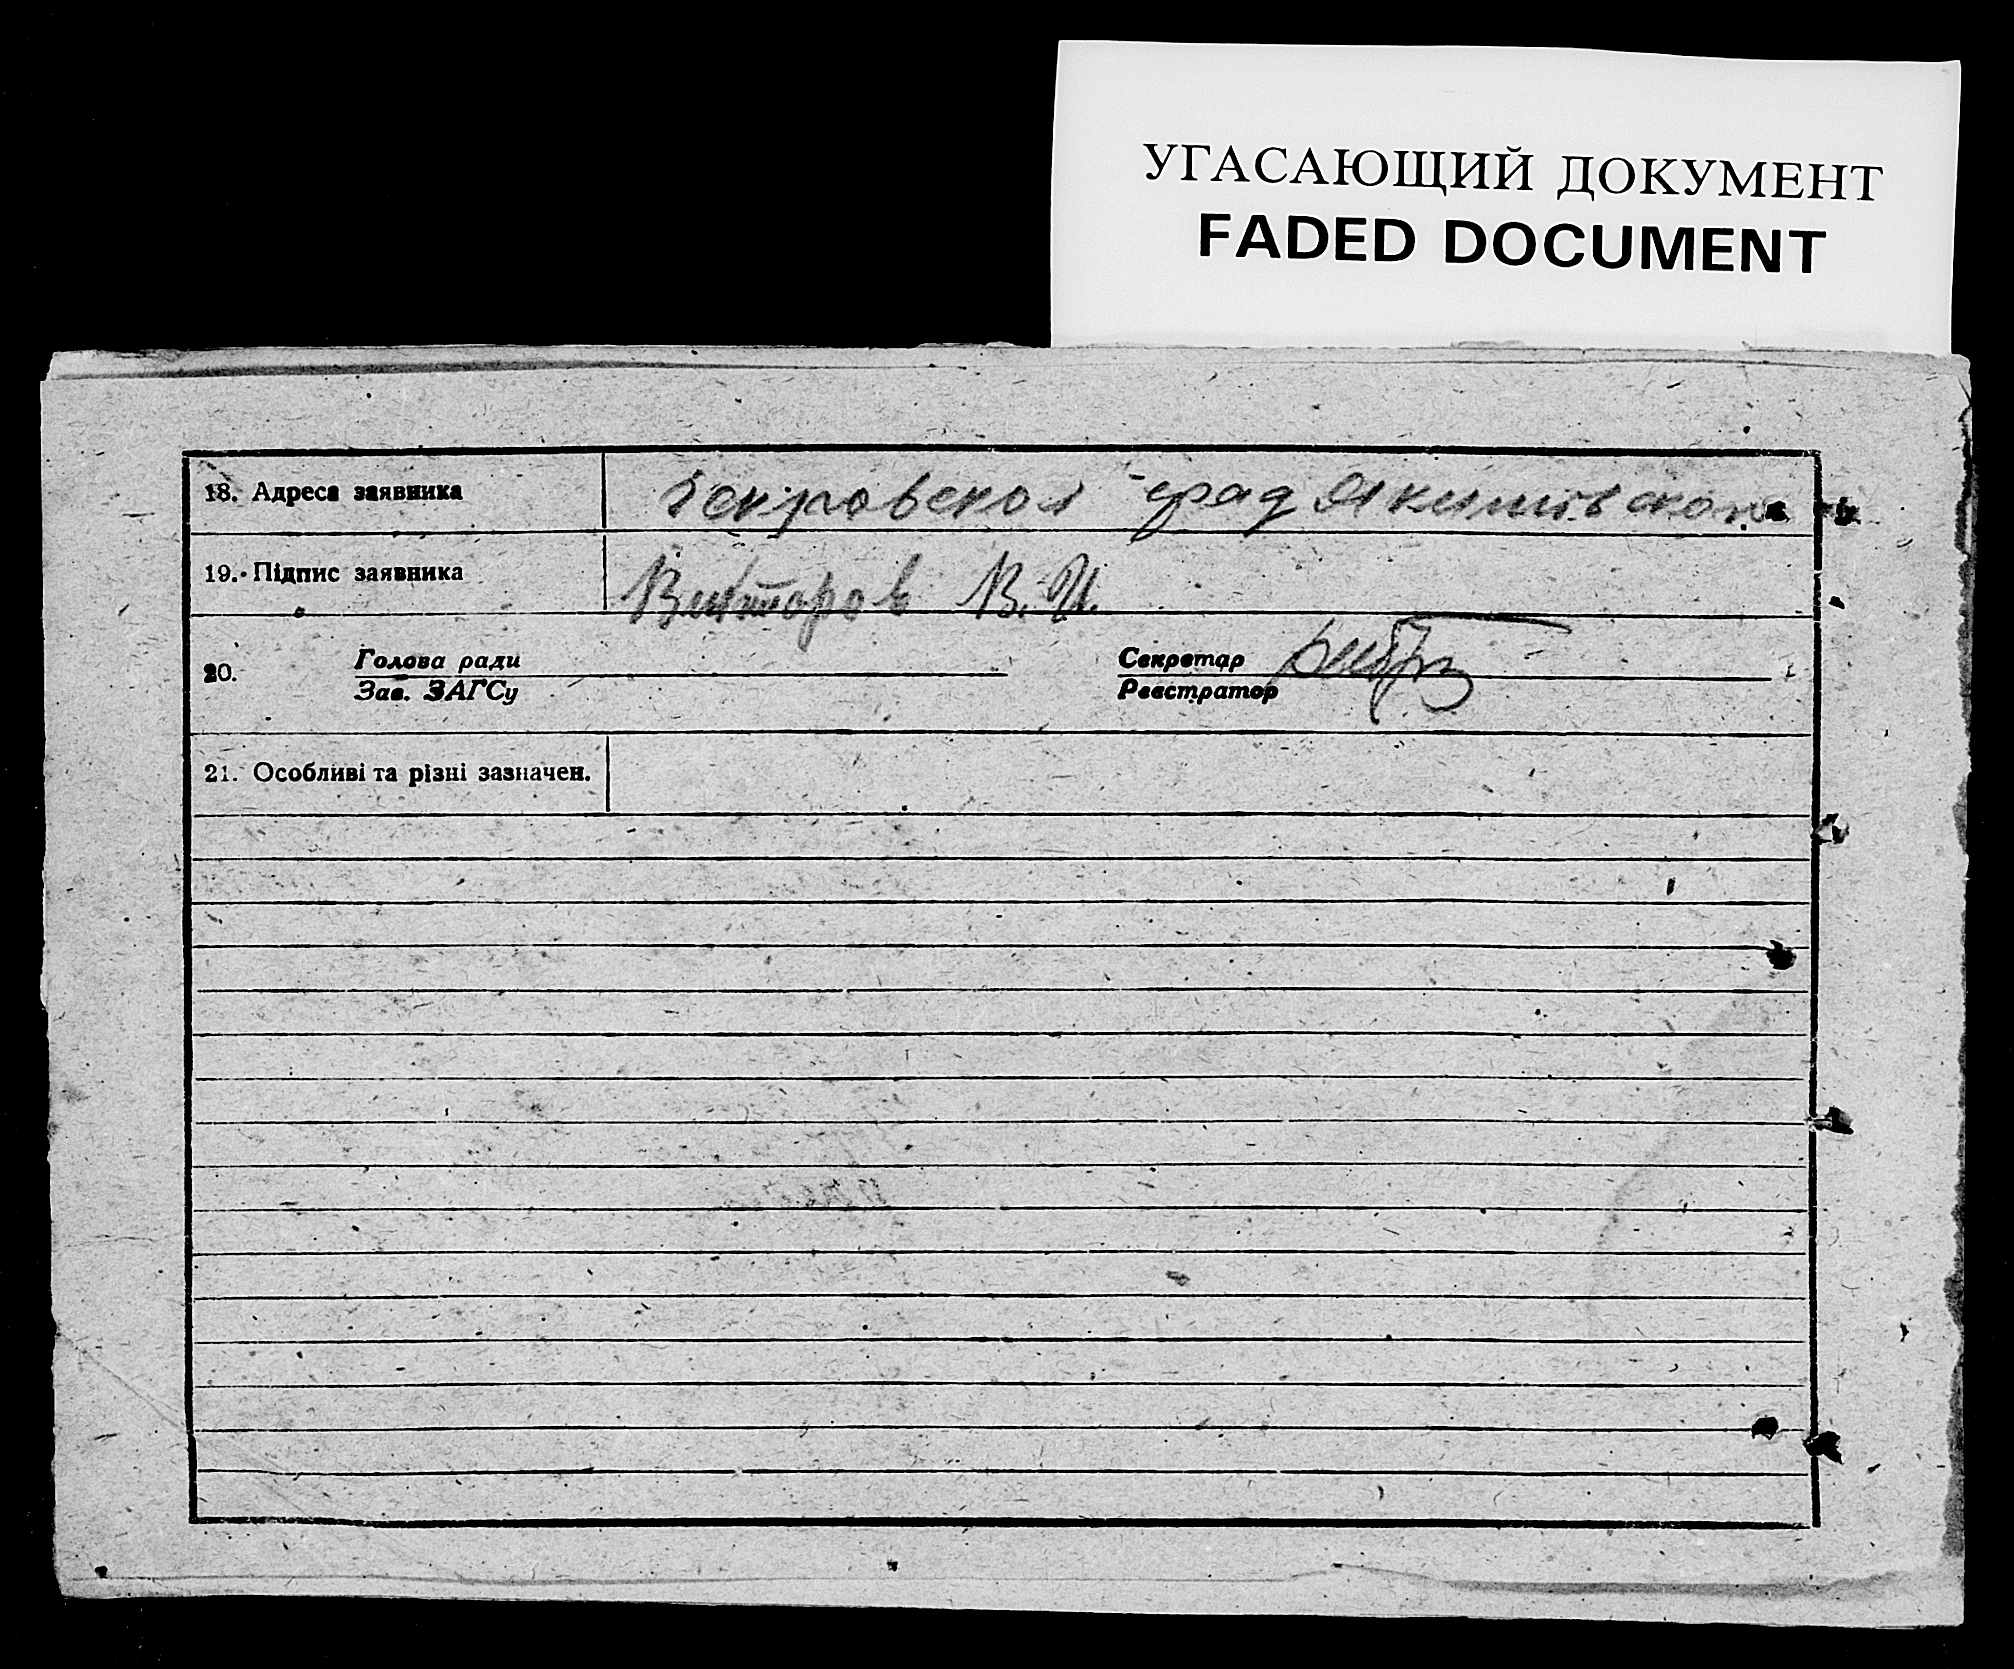 УГАСАЮЩИЙ ДОКУМЕНТ
FADED DOCUMENT
18. Адреса заявника
19. Підпис заявника Викторов В. И.
20. Голова ради Секретар
Зав. ЗАГСу Реєстратор
21. Особливі та різні зазначен.